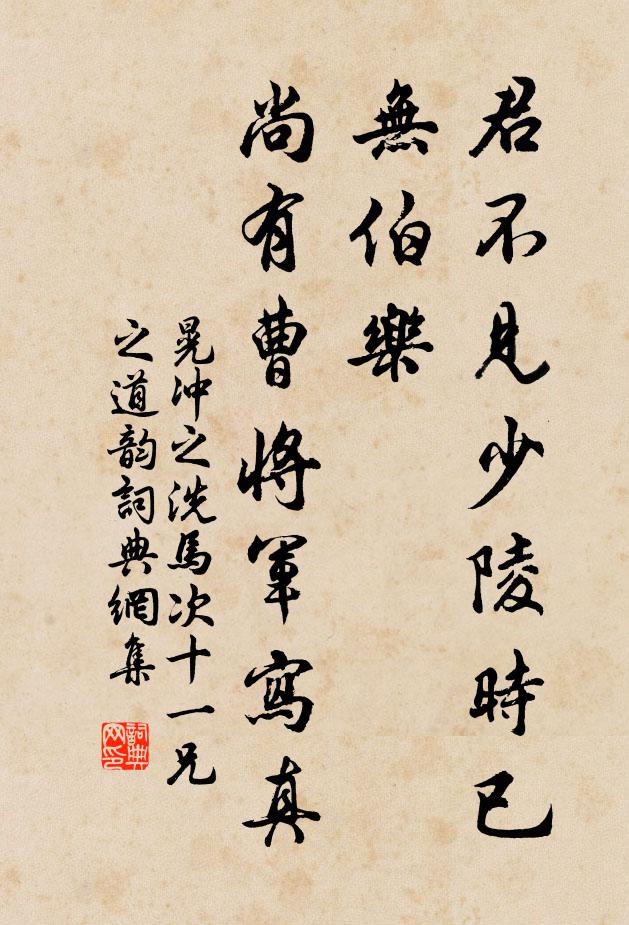 君不見少陵時已
無伯樂
尚有曹將軍寫真
晁沖之洗馬次十一兄
之道韵詞典網集
詞典网印